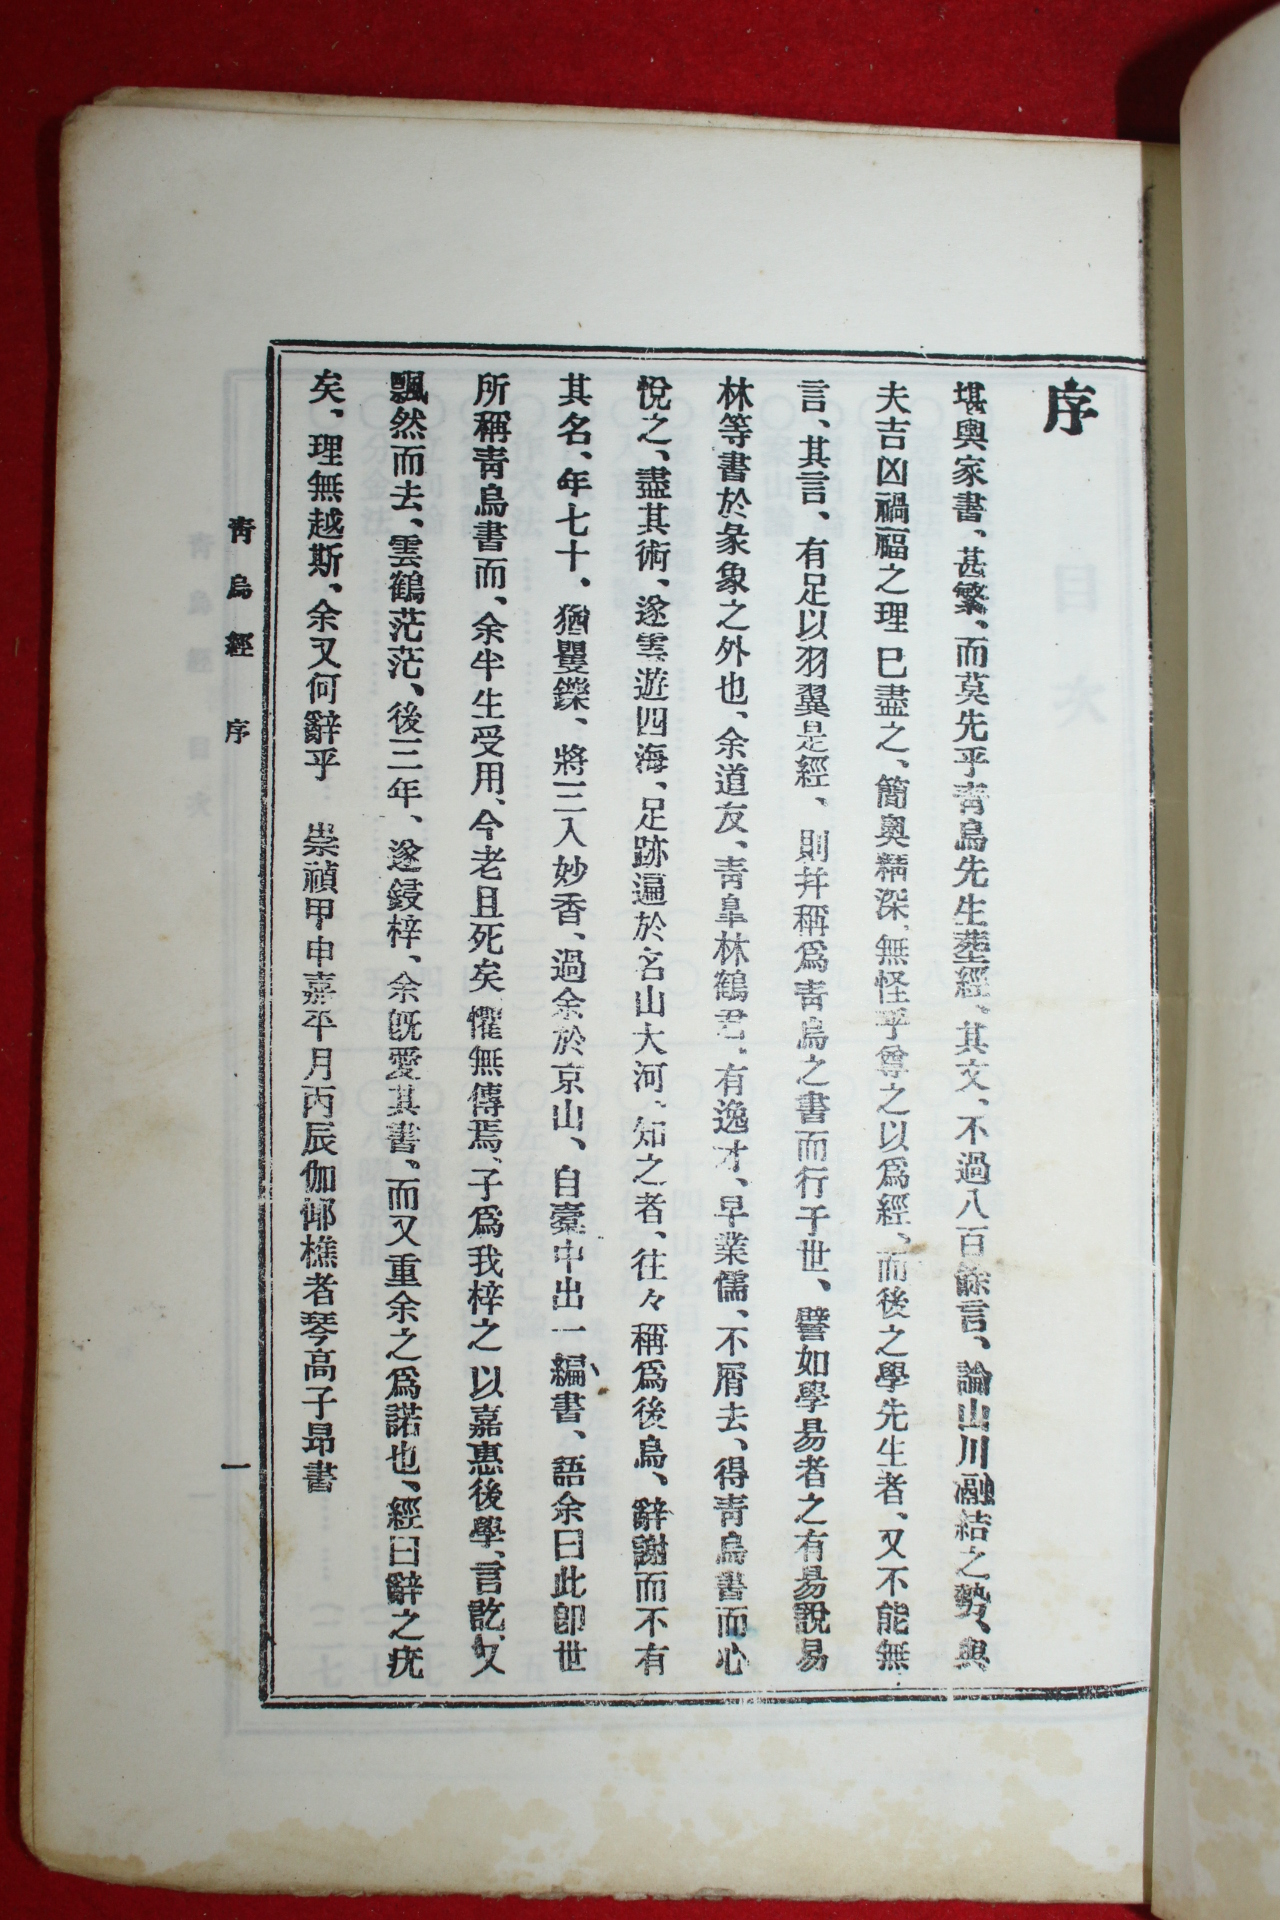 序
堪輿家書、甚繁、而莫先乎靑烏先生葬經、其文、不過八百餘言、論山川融結之勢、與
夫吉凶禍福之理已盡之、簡奧精深、無怪乎尊之以爲經、而後之學先生者、又不能無
言、其言、有足以羽翼是經、則并稱爲靑烏之書而行于世、譬如學易者之有易說易
林等書於彖象之外也、余道友、靑皐林鶴君、有逸才、早業儒、不屑去、得靑烏書而心
悅之、盡其術、遂雲遊四海、足跡遍於名山大河、知之者、往々稱爲後烏、辭謝而不有
其名、年七十、猶矍鑠、將三入妙香、過余於京山、自橐中出一編書、語余曰此卽世
所稱靑烏書而、余半生受用、今老且死矣懼無傳焉、子爲我梓之以嘉惠後學、言訖、又
飄然而去、雲鶴茫茫、後三年、遂鋟梓、余旣愛其書、而又重余之爲諾也、經曰辭之疣
矣、理無越斯、余又何辭乎　崇禎甲申嘉平月丙辰伽倻樵者琴高子昻書
靑烏經　序
一